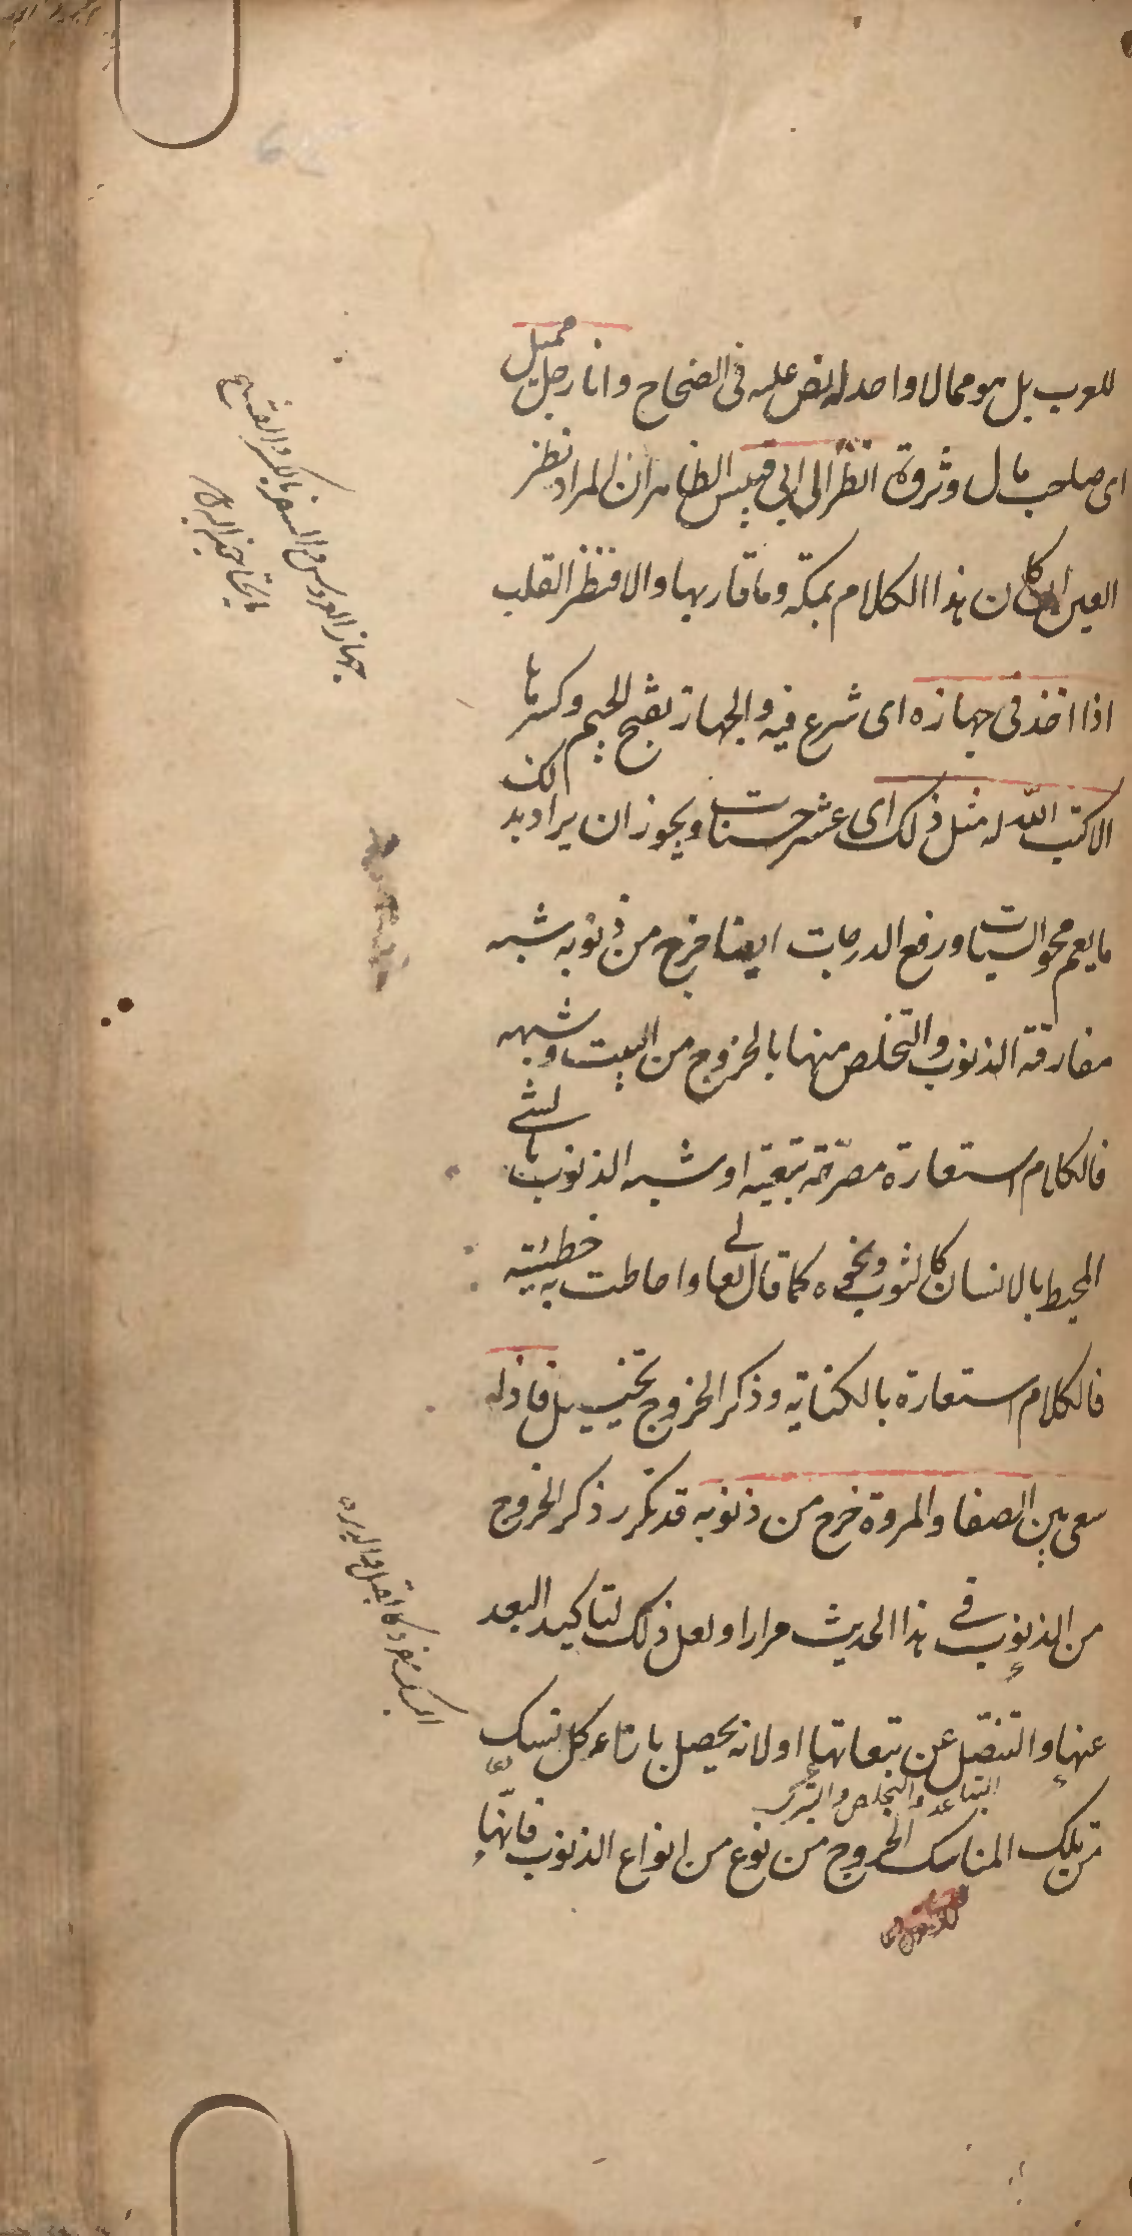 للعرب بل هو مما لا واحد له نص عليه في الصحاح وانا رجل مميل
اى صاحب مال وثروة انظر الى ابى قبيس الظاهر ان المراد نظر
العين ان كان هذا الكلام بمكة وما قاربها والا فنظر القلب
اذا اخذ فى جهازه اى شرع فيه والجهاز بفتح الجيم وكسرها
الا كتب الله له مثل ذلك اى عشر حسنات ويجوز ان يراد بذلك
ما يعم محو السيئات ورفع الدرجات ايضا خرج من ذنوبه شبه
مفارقة الذنوب والتخلص منها بالخروج من البيت وشبهه
فالكلام استعارة مصرّحة تبعية او شبه الذنوب بالشئ
المحيط بالانسان كالثوب ونحوه كما قال تعالى واحاطت به خطيئته
فالكلام استعارة بالكناية وذكر الخروج تخييل فاذا
سعى بين الصفا والمروة خرج من ذنوبه قد تكرر ذكر الخروج
من الذنوب في هذا الحديث مرارا ولعل ذلك لتاكيد البعد
عنها والتنصّل عن تبعاتها او لانه يحصل باداء كل نسك
التباعد والتخلص والتبرى
من تلك المناسك الخروج من نوع من انواع الذنوب فانّها
جهاز العروس والسفر بالكسر والفتح
ما يحتاج اليه